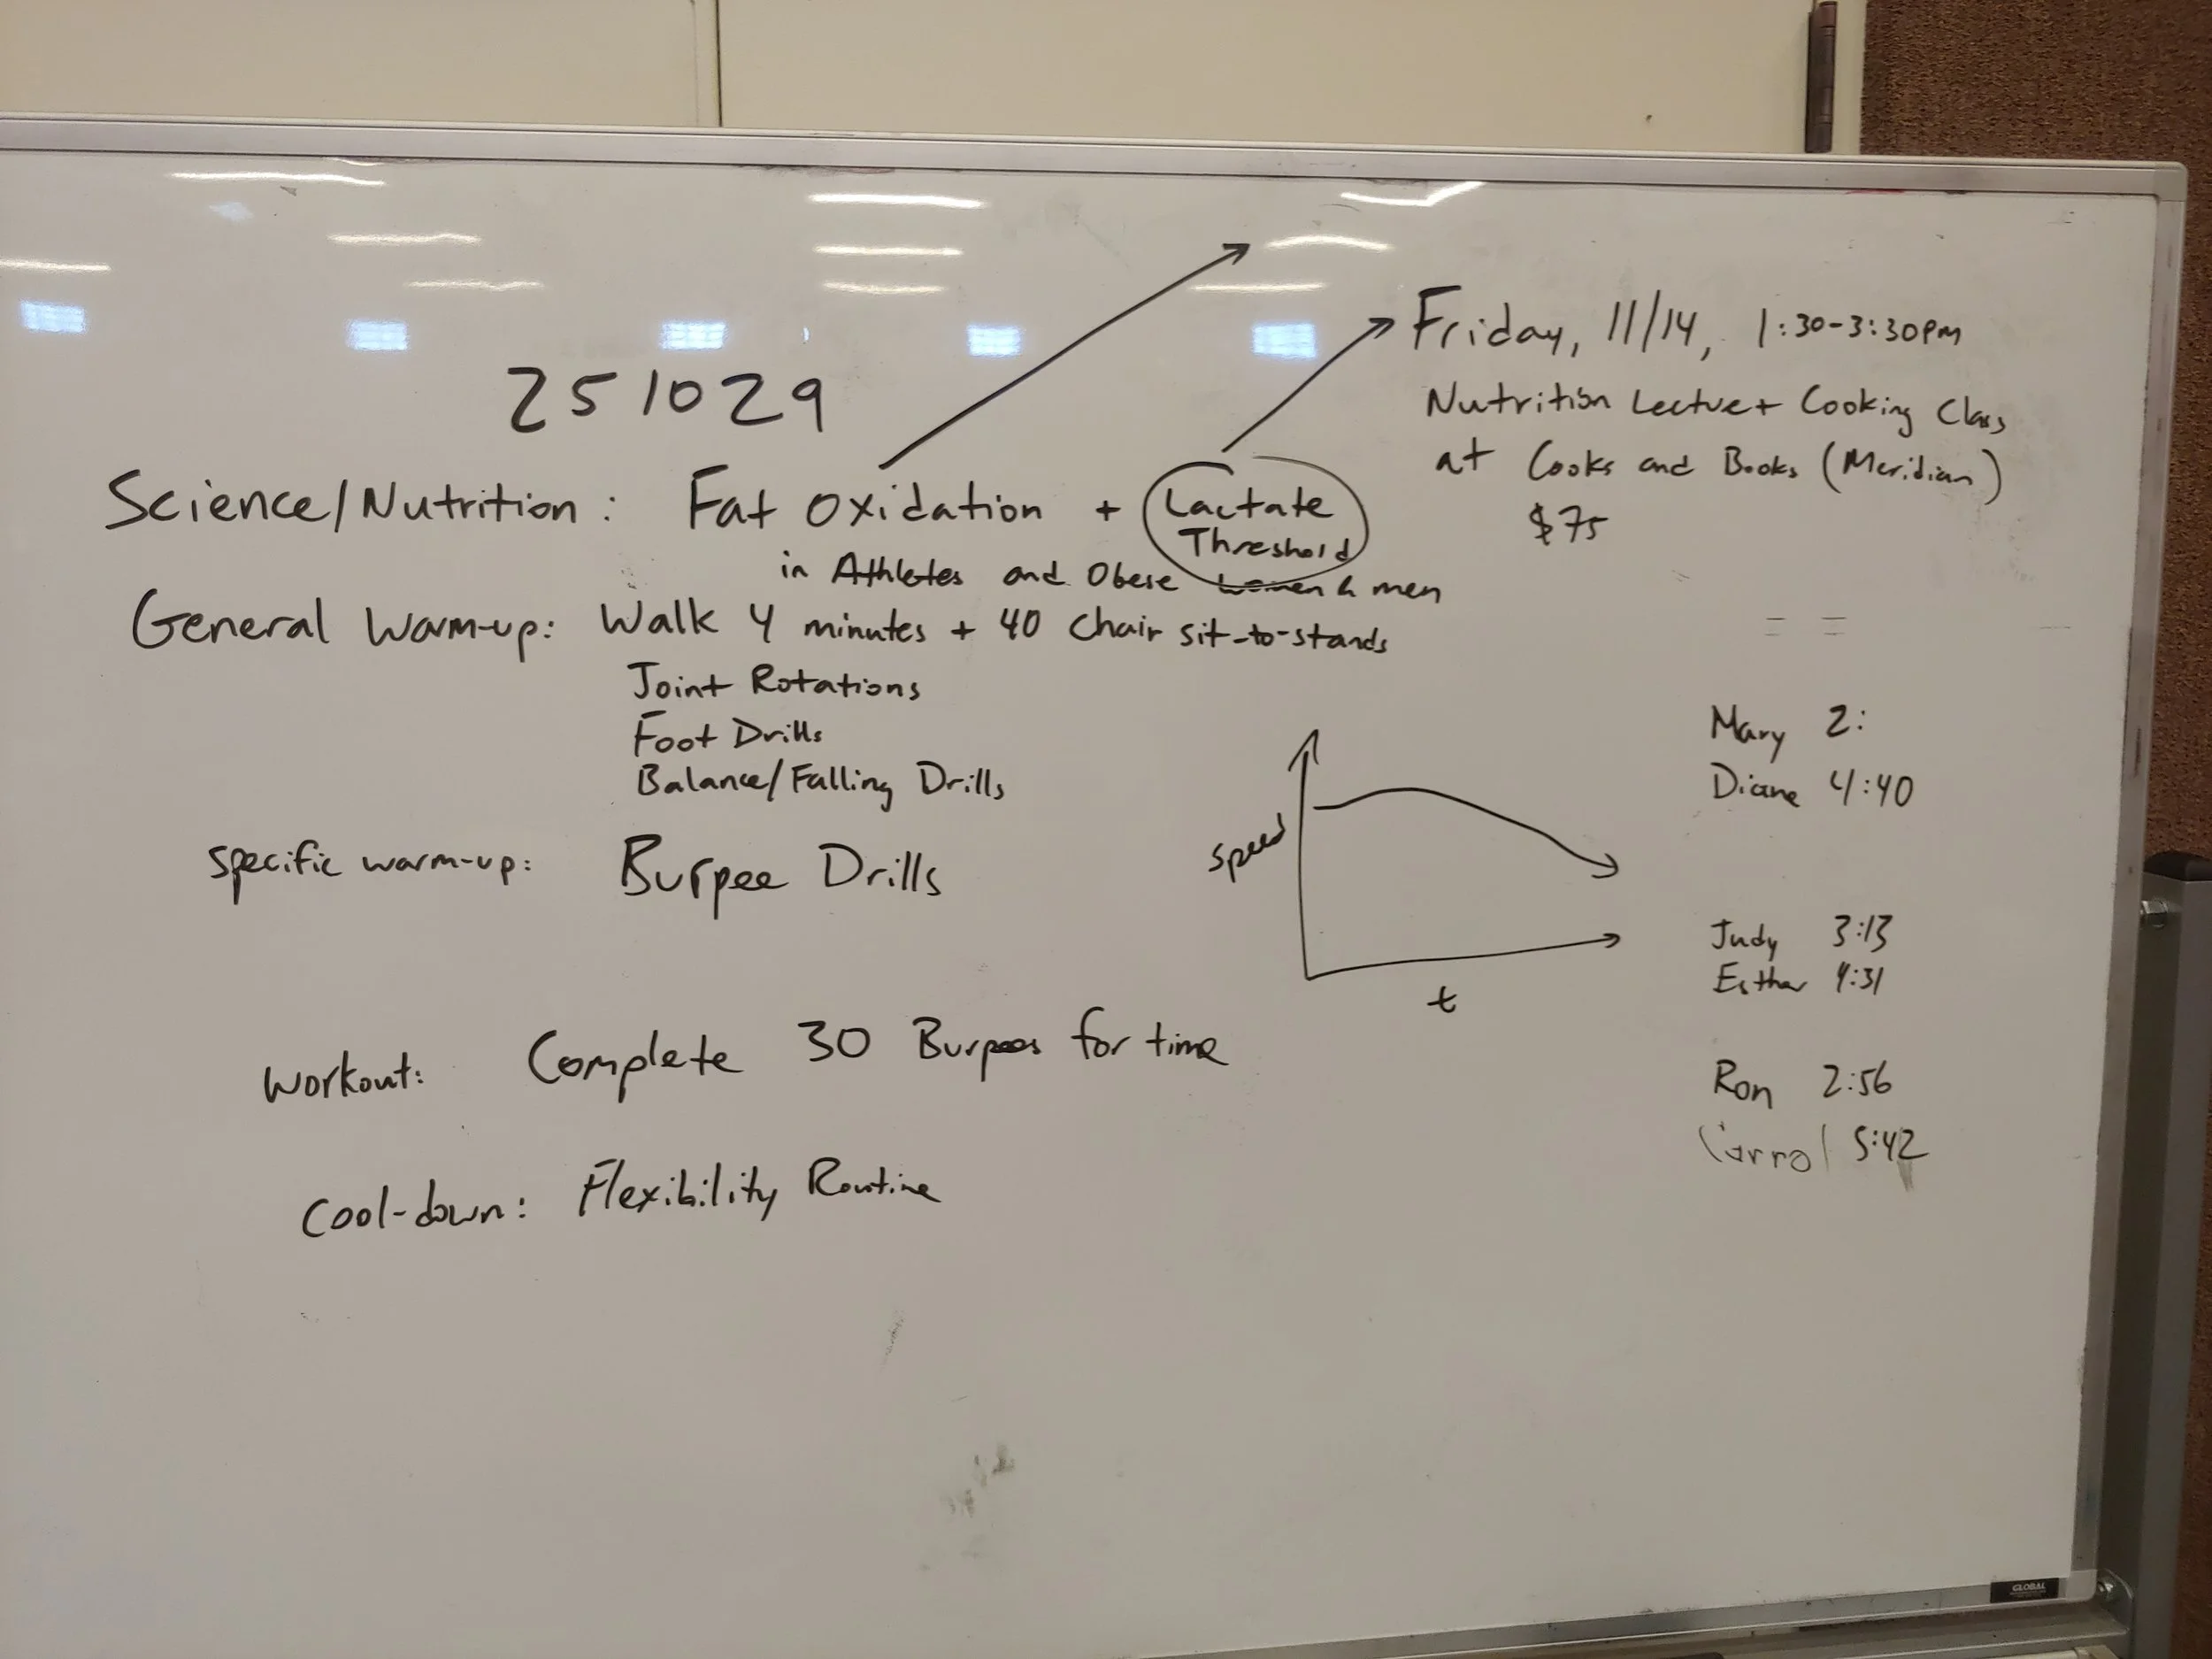 251029
Science/Nutrition: Fat Oxidation + Lactate
Threshold
in Athletes and Obese women & men
General Warm-up: Walk 4 minutes + 40 Chair sit-to-stands
Joint Rotations
Foot Drills
Balance/Falling Drills
Specific warm-up: Burpee Drills
Workout: Complete 30 Burpees for time
Cool-down: Flexibility Routine
Friday, 11/14, 1:30-3:30pm
Nutrition Lecture + Cooking Class
at Cooks and Books (Meridian)
$75
speed
t
Mary 2:
Diane 4:40
Judy 3:13
Esther 4:31
Ron 2:56
5:42
GLOBAL